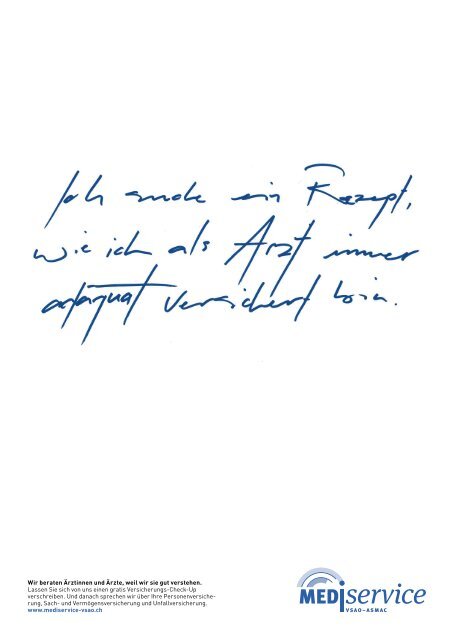 Ich suche ein Rezept,
wie ich als Arzt immer
adäquat versichert bin.
Wir beraten Ärztinnen und Ärzte, weil wir sie gut verstehen.
Lassen Sie sich von uns einen gratis Versicherungs-Check-Up
verschreiben. Und danach sprechen wir über Ihre Personenversiche-
rung, Sach- und Vermögensversicherung und Unfallversicherung.
www.mediservice-vsao.ch
MEDIservice
VSAO-ASMAC